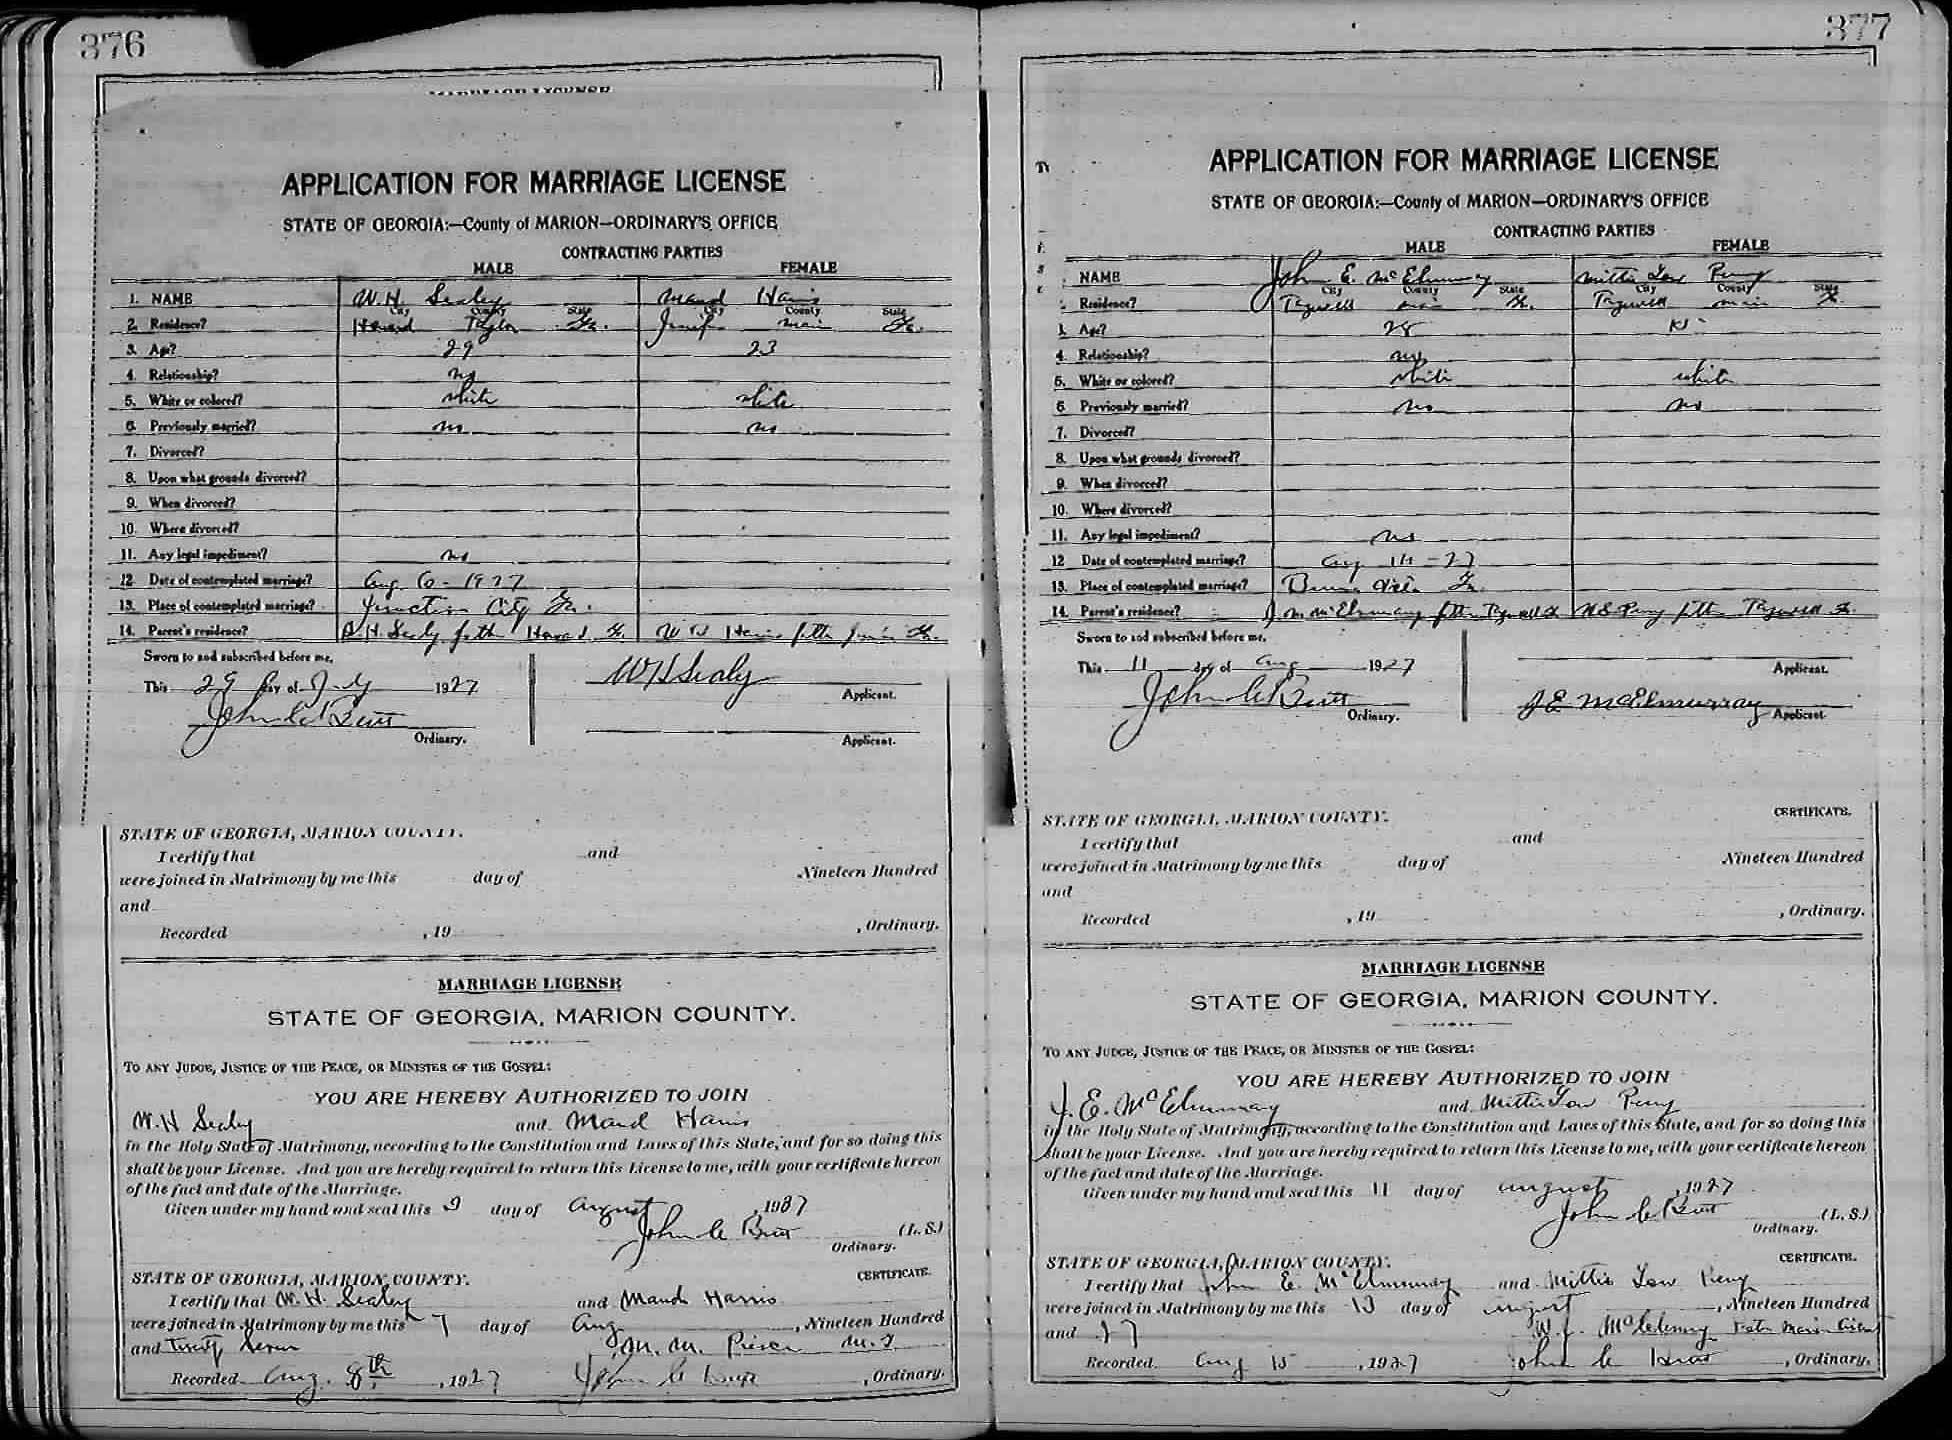 376
MARRIAGE LICENSE
APPLICATION FOR MARRIAGE LICENSE
STATE OF GEORGIA:—County of MARION—ORDINARY'S OFFICE
CONTRACTING PARTIES
MALE FEMALE
1. NAME W. H. Sealey Maud Harris
City County State City County State
2. Residence? Howard Taylor Ga. Ga.
3. Age? 29 23
4. Relationship? no
5. White or colored? white white
6. Previously married? no no
7. Divorced?
8. Upon what grounds divorced?
9. When divorced?
10. Where divorced?
11. Any legal impediment? no
12. Date of contemplated marriage? Aug. 6 - 1927
13. Place of contemplated marriage? Junction City Ga.
14. Parent's residence? H. Sealy Howard Ga. Harris Ga.
Sworn to and subscribed before me,
This 29 day of July 1927 W H Sealy
Applicant.
John C Butt
Ordinary.
Applicant.
STATE OF GEORGIA, MARION COUNTY.
I certify that and
were joined in Matrimony by me this day of Nineteen Hundred
and
Recorded , 19 , Ordinary.
MARRIAGE LICENSE
STATE OF GEORGIA, MARION COUNTY.
TO ANY JUDGE, JUSTICE OF THE PEACE, OR MINISTER OF THE GOSPEL:
YOU ARE HEREBY AUTHORIZED TO JOIN
W. H Sealey and Maud Harris
in the Holy State of Matrimony, according to the Constitution and Laws of this State, and for so doing this
shall be your License. And you are hereby required to return this License to me, with your certificate hereon
of the fact and date of the Marriage.
Given under my hand and seal this day of August , 1927
John C Butt (L. S.)
Ordinary.
STATE OF GEORGIA, MARION COUNTY. CERTIFICATE.
I certify that W. H. Sealey and Maud Harris
were joined in Matrimony by me this 7 day of Aug , Nineteen Hundred
and twenty seven M. M. Pierce
Recorded Aug. 8th , 1927 John C Butt , Ordinary.
377
APPLICATION FOR MARRIAGE LICENSE
STATE OF GEORGIA:—County of MARION—ORDINARY'S OFFICE
CONTRACTING PARTIES
MALE FEMALE
NAME John E. McElmurray Mittie Low Perry
City County State City County State
Residence? Tazewell Ga. Tazewell
3. Age? 28
4. Relationship? no
5. White or colored? white white
6. Previously married? no no
7. Divorced?
8. Upon what grounds divorced?
9. When divorced?
10. Where divorced?
11. Any legal impediment? no
12 Date of contemplated marriage? Aug 14 - 27
13. Place of contemplated marriage? Buena Vista Ga.
14. Parent's residence? J. M. McElmurray Tazewell Perry Tazewell Ga.
Sworn to and subscribed before me,
This 11 day of Aug 1927
Applicant.
John C Butt
Ordinary.
J E McElmurray Applicant.
STATE OF GEORGIA, MARION COUNTY. CERTIFICATE.
I certify that and
were joined in Matrimony by me this day of Nineteen Hundred
and
Recorded , 19 , Ordinary.
MARRIAGE LICENSE
STATE OF GEORGIA, MARION COUNTY.
TO ANY JUDGE, JUSTICE OF THE PEACE, OR MINISTER OF THE GOSPEL:
YOU ARE HEREBY AUTHORIZED TO JOIN
J. E. McElmurray and Mittie Low Perry
in the Holy State of Matrimony, according to the Constitution and Laws of this State, and for so doing this
shall be your License. And you are hereby required to return this License to me, with your certificate hereon
of the fact and date of the Marriage.
Given under my hand and seal this 11 day of August , 1927
John C Butt (L. S.)
Ordinary.
STATE OF GEORGIA, MARION COUNTY. CERTIFICATE.
I certify that John E. McElmurray and Mittie Low Perry
were joined in Matrimony by me this 13 day of August , Nineteen Hundred
and 27
Recorded Aug 15 , 1927 John C Butt , Ordinary.